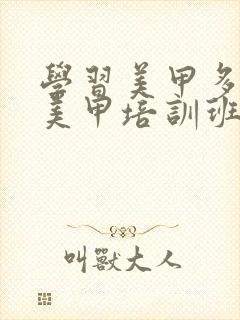 學習美甲多
美甲培訓班
叫獸大人